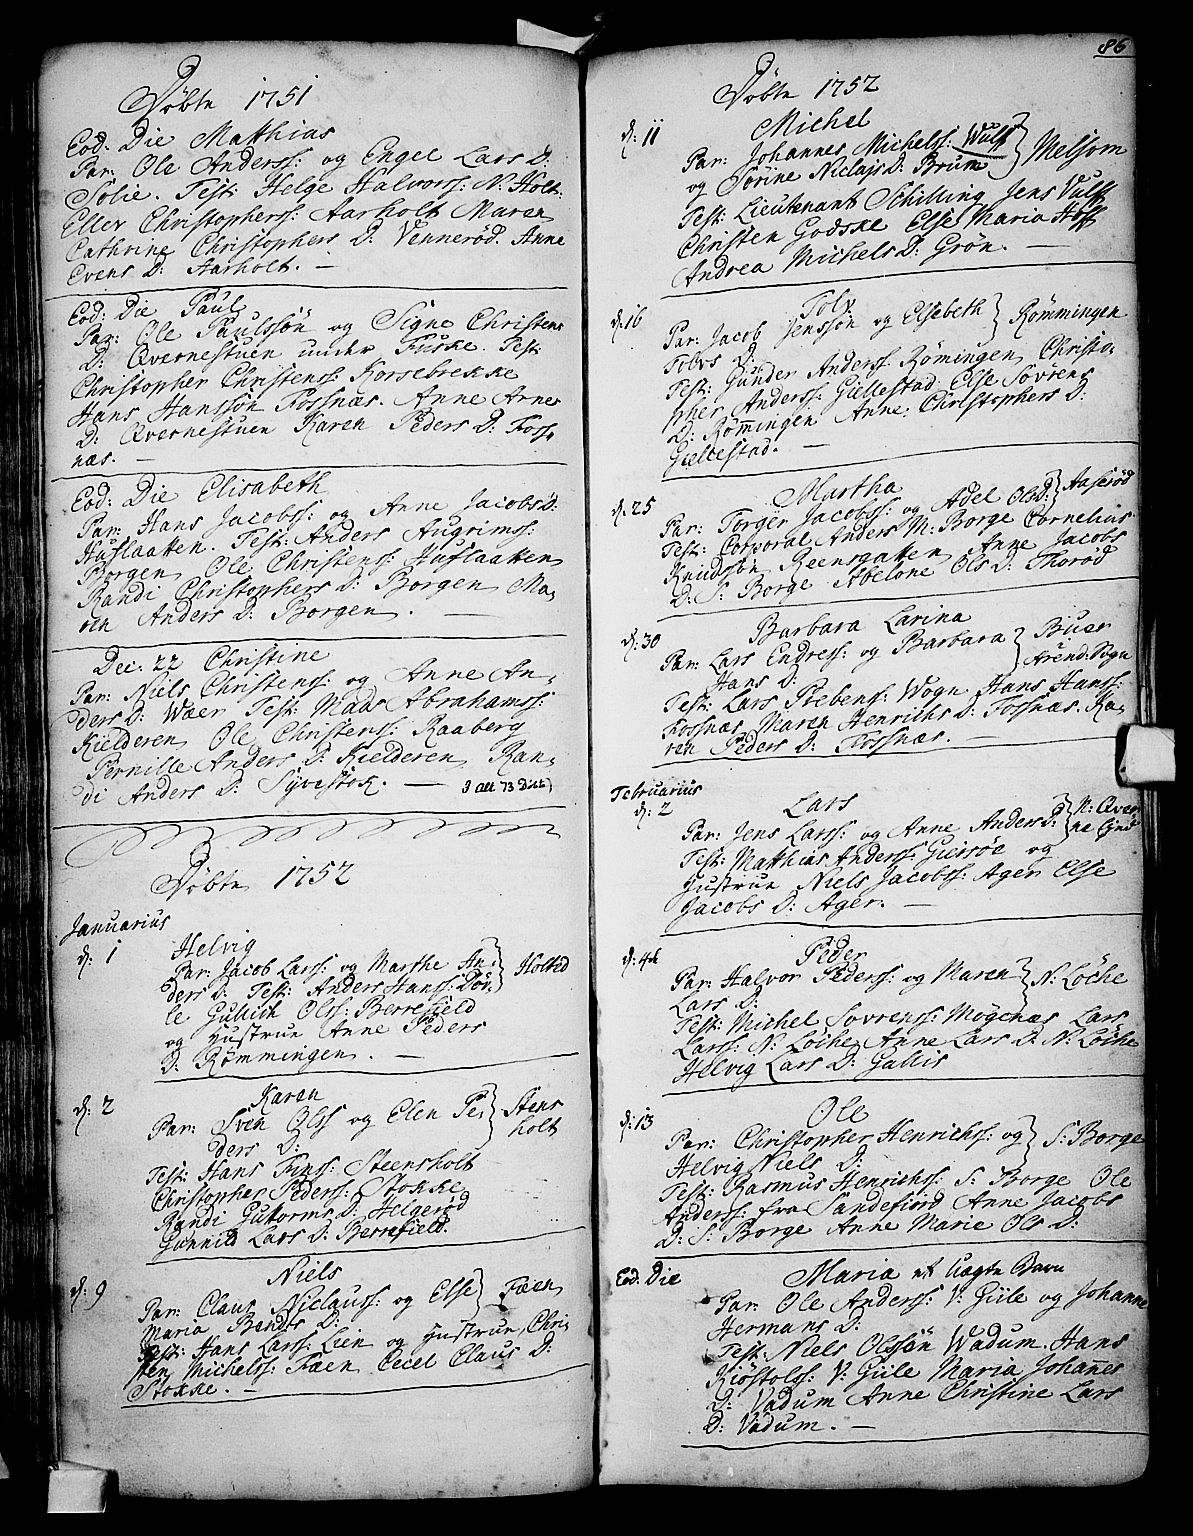 Døbte 1751
Eod: Die Matthias
Par: Ole Anderss: og Engel Lars D:
Solie. Test: Helge Halvorss: N: Holt
Eller Christopherss: Aarholt Maren
Cathrine Christophers D: Vennerød. Anne
Evens D: Aarholt. —
Eod: Die Paul
Par: Ole Paulssøn og Signe Christens
D: Qvernestuen under Fuske. Test:
Christopher Christenss: Korsebrekke
Hans Hanssøn Fossnæs. Anne Arnes
D: Qvernestuen Karen Peders D: Foss-
næs. —
Eod: Die Elisabeth
Par: Hans Jacobss: og Anne Jacobs D:
Huflaatten. Test: Anders Augrimss:
Borgen Ole Christenss: Huflaatten
Randi Christophers D: Borgen Ma-
ren Anders D: Borgen. —
Dec: 22 Christine
Par: Niels Christenss: og Anne An-
ders D: Wæer Test: Mads Abrahamss:
Kielderen Ole Christenss: Raaberg
Pernille Anders D: Kielderen Ran-
di Anders D: Syvestok. — I alt 73
Døbte 1752
Januarius
d: 1 Helvig
Par: Jacob Larss: og Marthe An- Holted
ders D: Test: Anders Hanss: Døv-
le Gullich Olss: Berrefield
og Hustrue Anne Peders
D: Rømmingen. —
d: 2 Karen
Par: Sven Olss og Elen Pe- Stens
ders D: holt
Test: Hans Finss: Steensholt
Christopher Pederss: Stokke
Randi Guttorms D: Helgerød
Gunnild Lars D: Berrefield.
d: 9 Niels
Par: Claus Niclauss: og Else Faen
Maria Bendts D:
Test: Hans Larss: Lein og Hustrue, Chri-
sten Michelss: Faen Cecel Claus D:
Stokke. —
86
Døbte 1752
d: 11 Michel
Par: Johannes Michelss: Wulf Melsom
og Sørine Niclajs D: Brum
Test: Lieutenant Schilling Jens Vulff
Christen Godske Else Maria Hoff
Andrea Michels D: Grøn. —
d: 16 Tolv
Par: Jacob Jenssøn og Elsebeth Rømmingen
Tolvs D:
Test: Gunder Anderss: Rømingen Christo-
pher Anderss: Gillestad Else Sovrens
D: Rømingen Anne Christophers D:
Gillestad. —
d: 25 Martha
Par: Torger Jacobss: og Adel Ols D: Aaserød
Test: Corporal Anders M: Borge Cornelius
Knudssøn Reensgatten Anne Jacobs
D: S: Borge Abelone Ols D: Thorød
d: 30 Barbara Larina
Par: Lars Endress: og Barbara Buer
Hans D: Arend: Sogn
Test: Lars Prebenss: Wogn Hans Hanss:
Fossnæs Maren Henrichs D: Fossnæs. Ka-
ren Peders D: Fossnæs. —
Februarius
d: 2 Lars
Par: Jens Larss: og Anne Anders D: N: Qver-
Test: Matthias Anderss: Giersøe og
Hustrue Niels Jacobss: Ager Else
Jacobs D: Ager. —
d: 4de Peder
Par: Halvor Pederss: og Maren N: Løche
Lars D:
Test: Michel Sovrenss: Mogenæs Lars
Larss: N: Løche Anne Lars D: N: Løche
Helvig Lars D: Gallis
d: 13 Ole
Par: Christopher Henrichss: og S: Borge
Helvig Niels D:
Test: Rasmus Henrichss: S: Borge Ole
Anderss: fra Sandefiord Anne Jacobs
D: S: Borge Anne Marie Ols D:
Eod: Die Maria et Uægte Barn
Par: Ole Anderss: V: Giile og Johanne
Hermans D:
Test: Niels Olssøn Wadum Hans
Kiøstolss: V: Giile Maria Johannes
D: Vadum Anne Christine Lars
D: Vadum. —